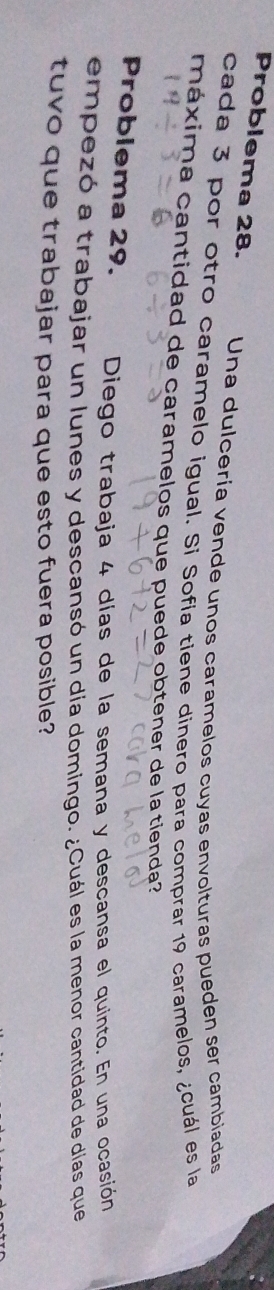 Problema 28. Una dulcería vende unos caramelos cuyas envolturas pueden ser cambiadas
cada 3 por otro caramelo igual. Si Sofía tiene dinero para comprar 19 caramelos, ¿cuál es la
máxima cantidad de caramelos que puede obtener de la tienda?
19 ÷ 3 = 6 6 ÷ 3 = 2 19 + 6 + 2 = 27 caramelos
Problema 29. Diego trabaja 4 días de la semana y descansa el quinto. En una ocasión
empezó a trabajar un lunes y descansó un día domingo. ¿Cuál es la menor cantidad de días que
tuvo que trabajar para que esto fuera posible?